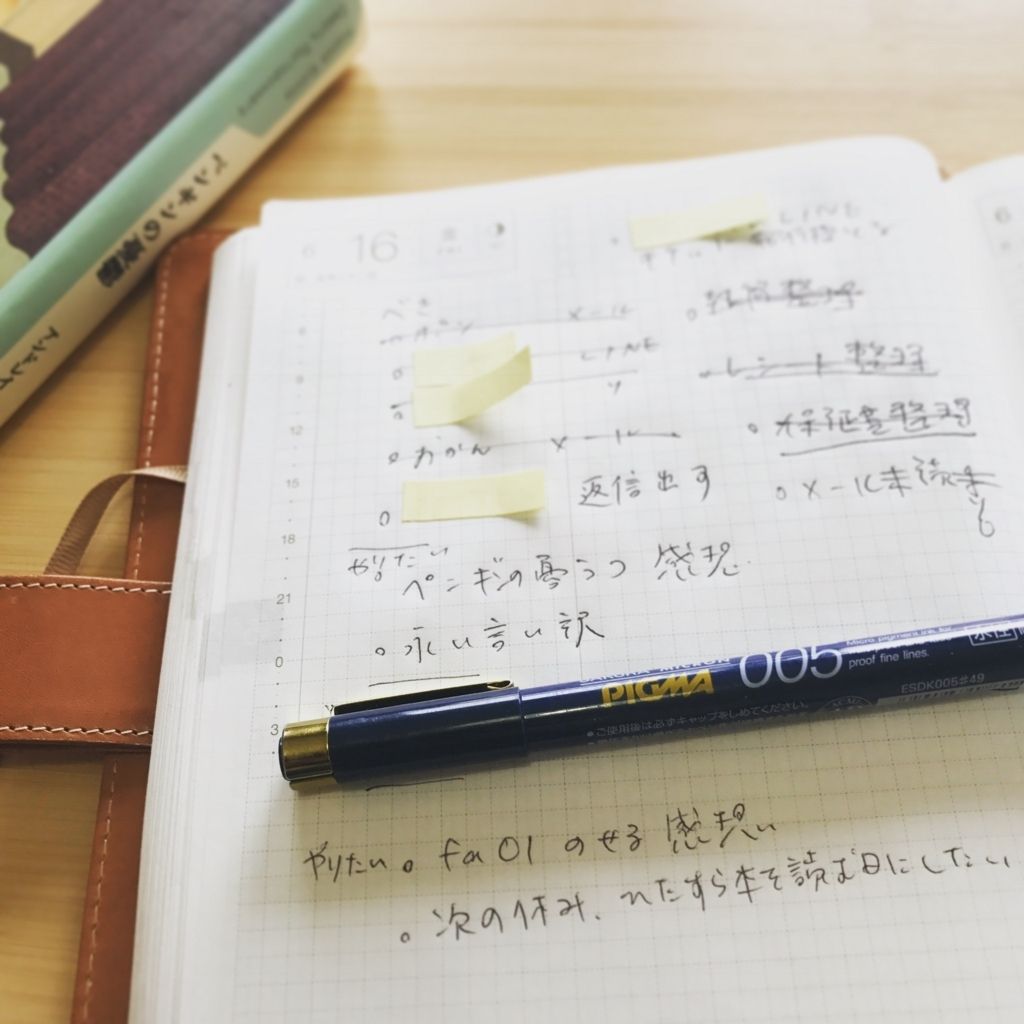 ペンギンの憂鬱
アンドレイ
6 16
LINE
メール
6
LINE
9
レシート整理
12
おかん メール
保証書整理
15
返信出す
メール未読
18
やりたい
ペンギンの憂うつ 感想
21
永い言い訳
0
SAKURA MICRON
PIGMA
005
Micro pigment ink for
proof fine lines.
水性
ESDK005#49
●ご使用後は必ずキャップをしめてください。
3
やりたい。fa01 のせる 感想い
次の休み、ひたすら本を読む日にしたい
6